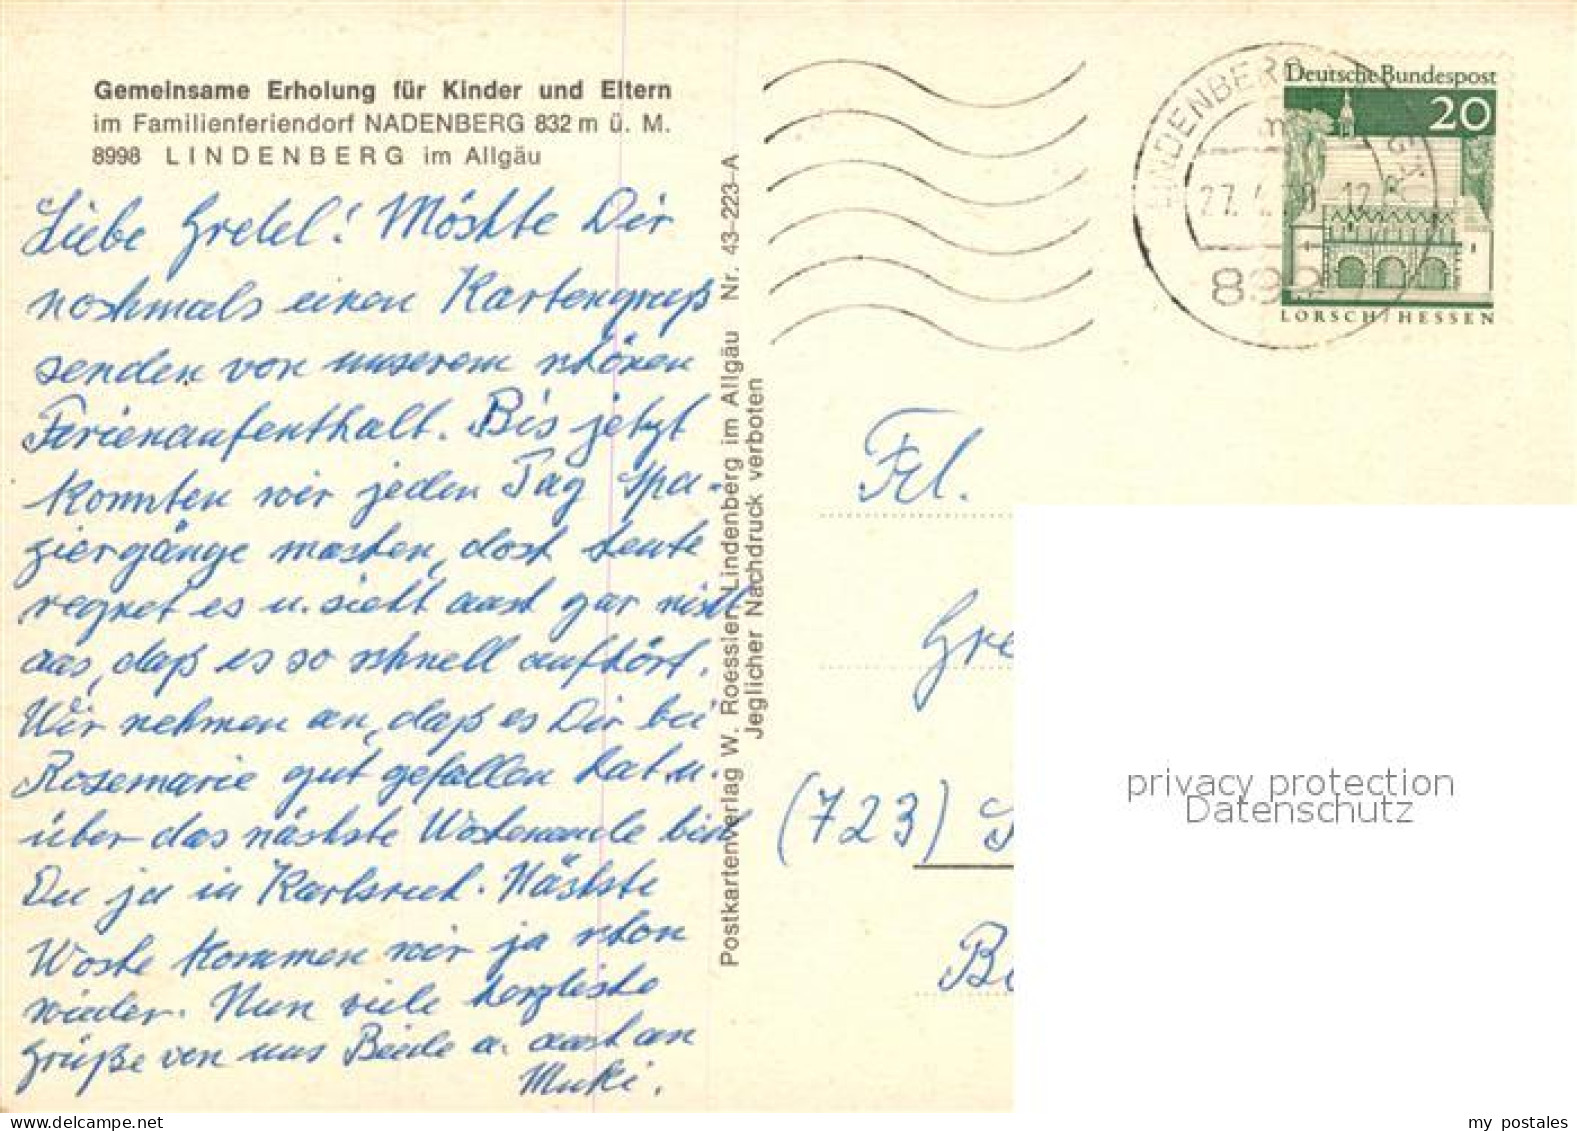 Gemeinsame Erholung für Kinder und Eltern
im Familienferiendorf NADENBERG 832 m ü. M.
8998 LINDENBERG im Allgäu
Liebe Gretel! Möchte Dir
nochmals einen Kartengruß
senden von unserem schönen
Ferienaufenthalt. Bis jetzt
konnten wir jeden Tag Spa-
ziergänge machen, doch heute
regnet es u. sieht auch gar nicht
aus, daß es so schnell aufhört.
Wir nehmen an, daß es Dir bei
Rosemarie gut gefallen hat u.
über das nächste Wochenende bist
Du ja in Karlsruh. Nächste
Woche kommen wir ja schon
wieder. Nun viele herzliche
Grüße von uns Beide u. auch an
Muki.
Postkartenverlag W. Roessler Lindenberg im Allgäu Nr. 43-223-A
Jeglicher Nachdruck verboten
LINDENBERG
27.4.70-12
899
Deutsche Bundespost
20
LORSCH/HESSEN
Frl.
Gre
(723) S
privacy protection
Datenschutz
Be
my postales